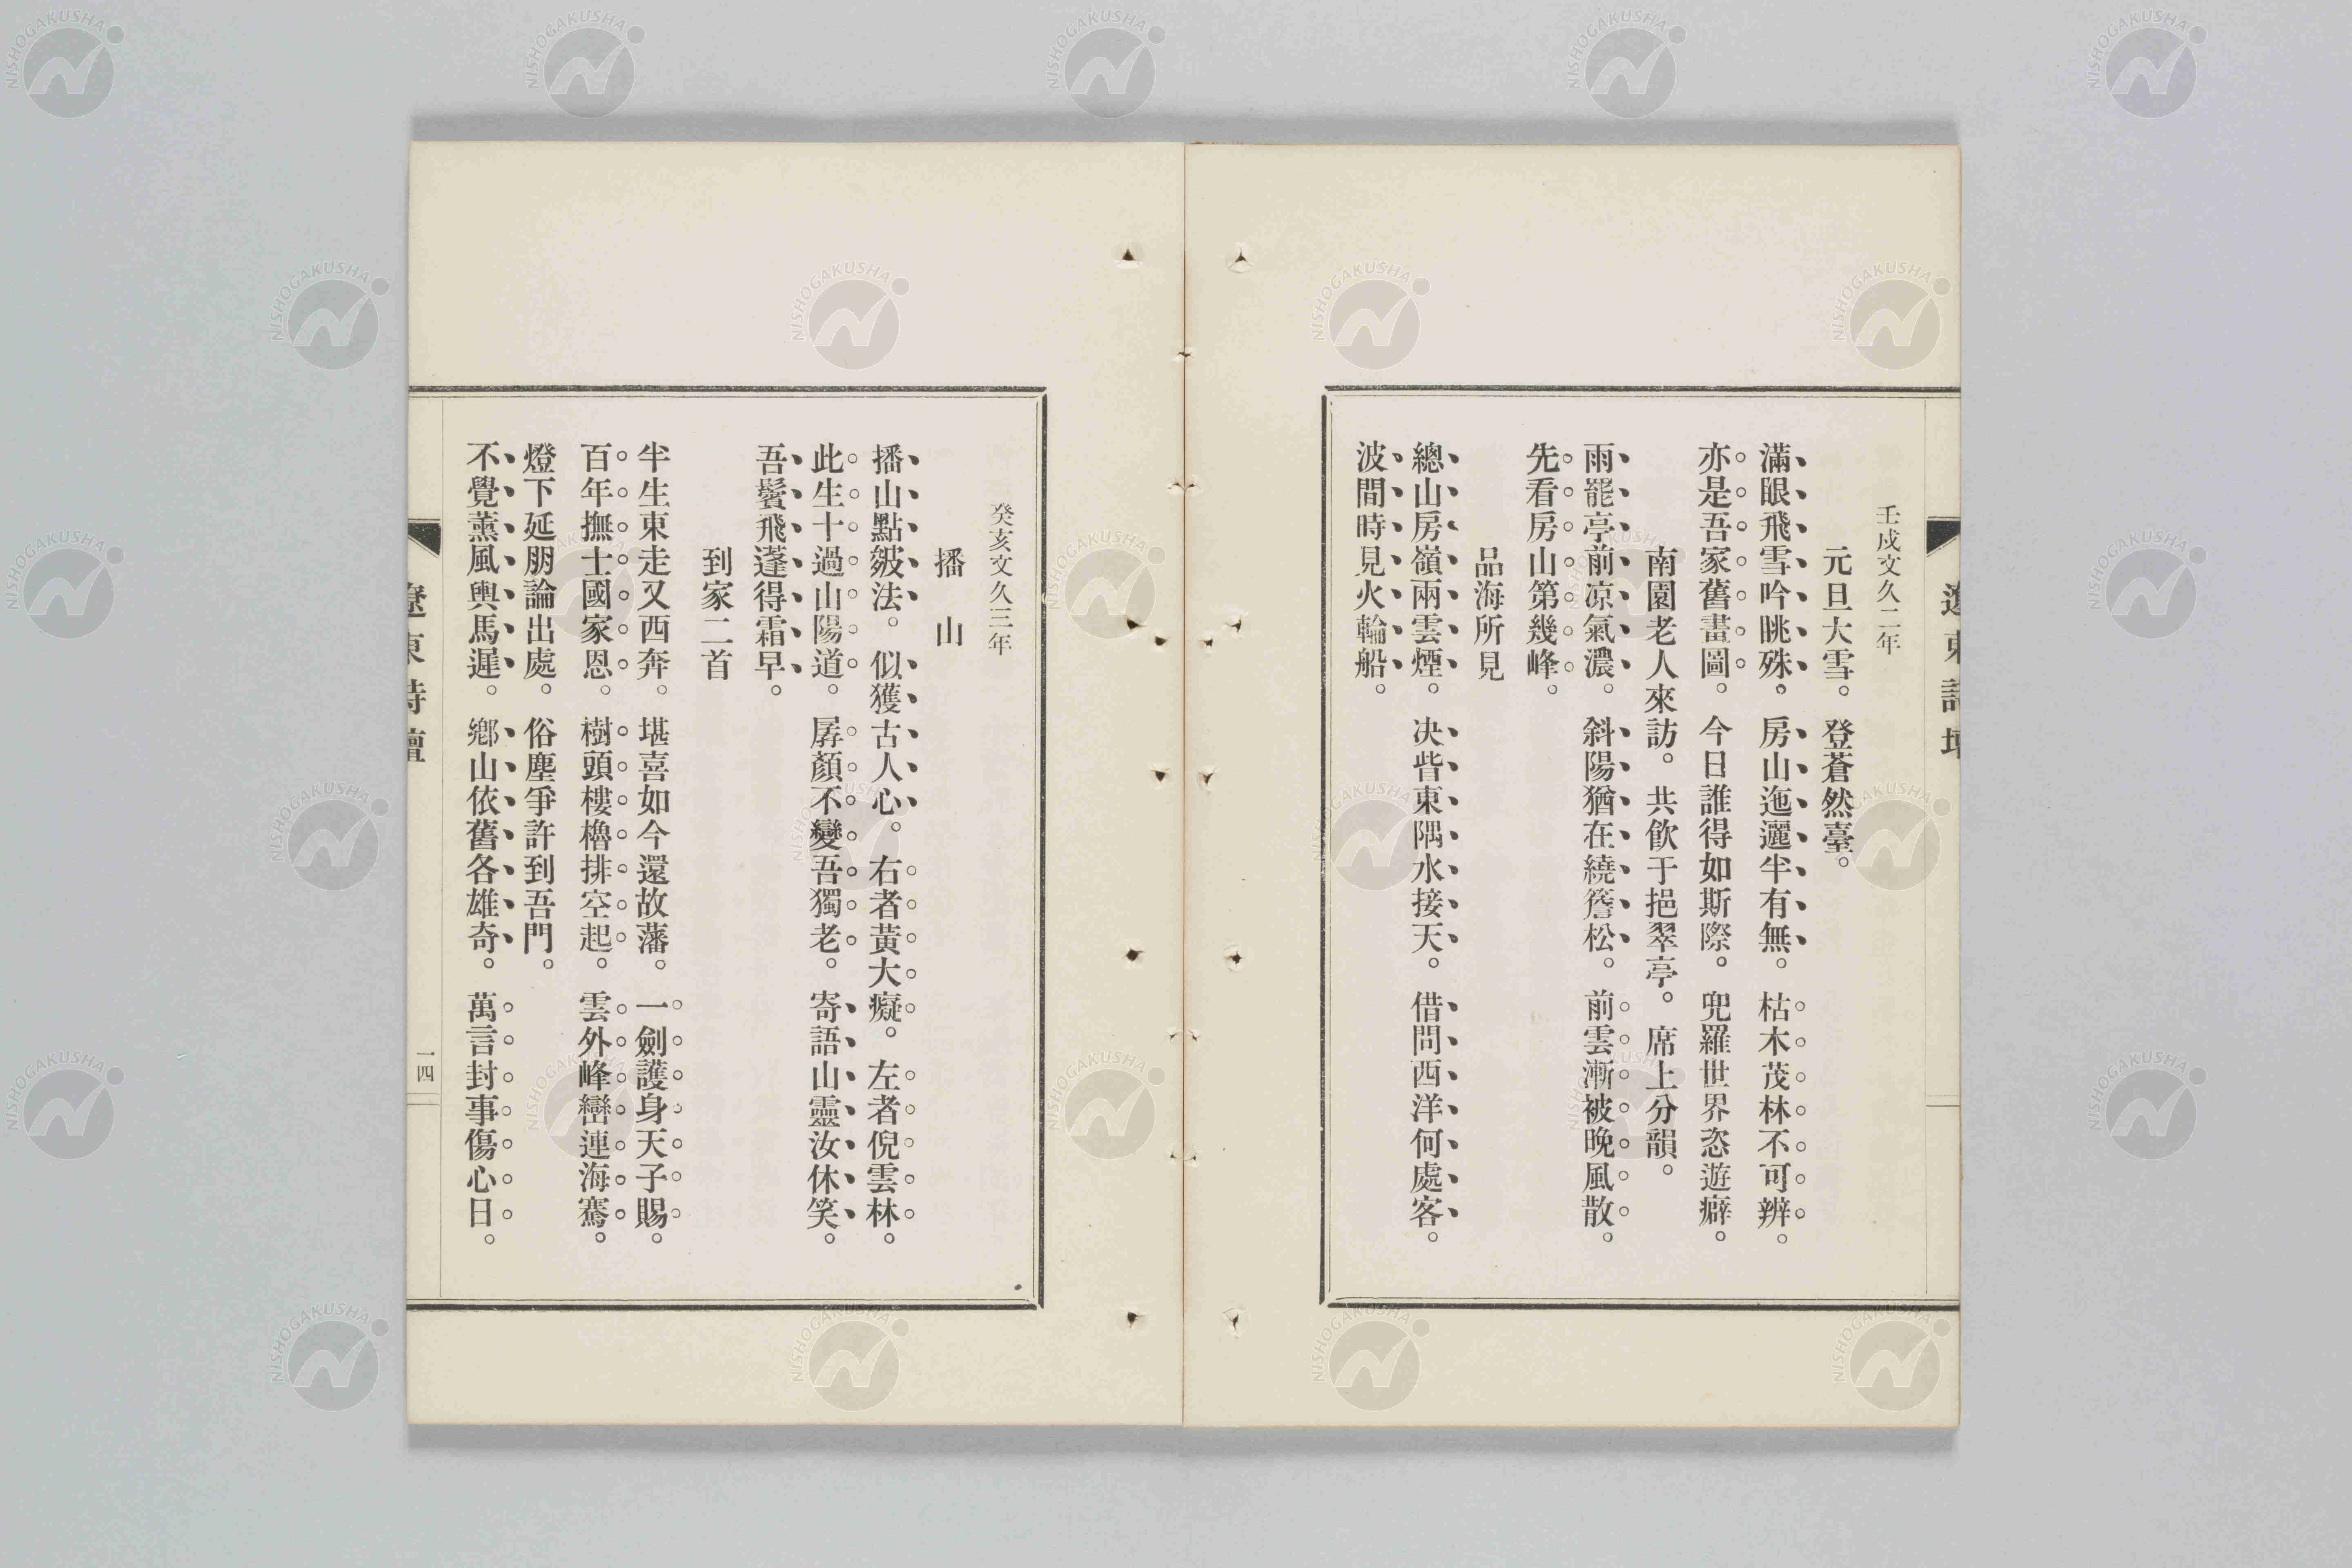 壬戌文久二年
元旦大雪。登蒼然臺。
滿眼飛雪吟眺殊。房山迤邐半有無。枯木茂林不可辨。
亦是吾家舊畫圖。今日誰得如斯際。兜羅世界恣遊癖。
南園老人來訪。共飮于挹翠亭。席上分韻。
雨罷亭前凉氣濃。斜陽猶在繞簷松。前雲漸被晩風散。
先看房山第幾峰。
品海所見
總山房嶺兩雲煙。决眥東隅水接天。借問西洋何處客。
波間時見火輪船。
癸亥文久三年
播山
播山點皴法。似獲古人心。右者黃大癡。左者倪雲林。
此生十過山陽道。孱顏不變吾獨老。寄語山靈汝休笑。
吾鬢飛蓬得霜早。
到家二首
半生東走又西奔。堪喜如今還故藩。一劍護身天子賜。
百年撫士國家恩。樹頭樓櫓排空起。雲外峰巒連海騫。
燈下延朋論出處。俗塵爭許到吾門。
不覺薰風輿馬遲。鄉山依舊各雄奇。萬言封事傷心日。
遼東詩壇
一四
NISHOGAKUSHA